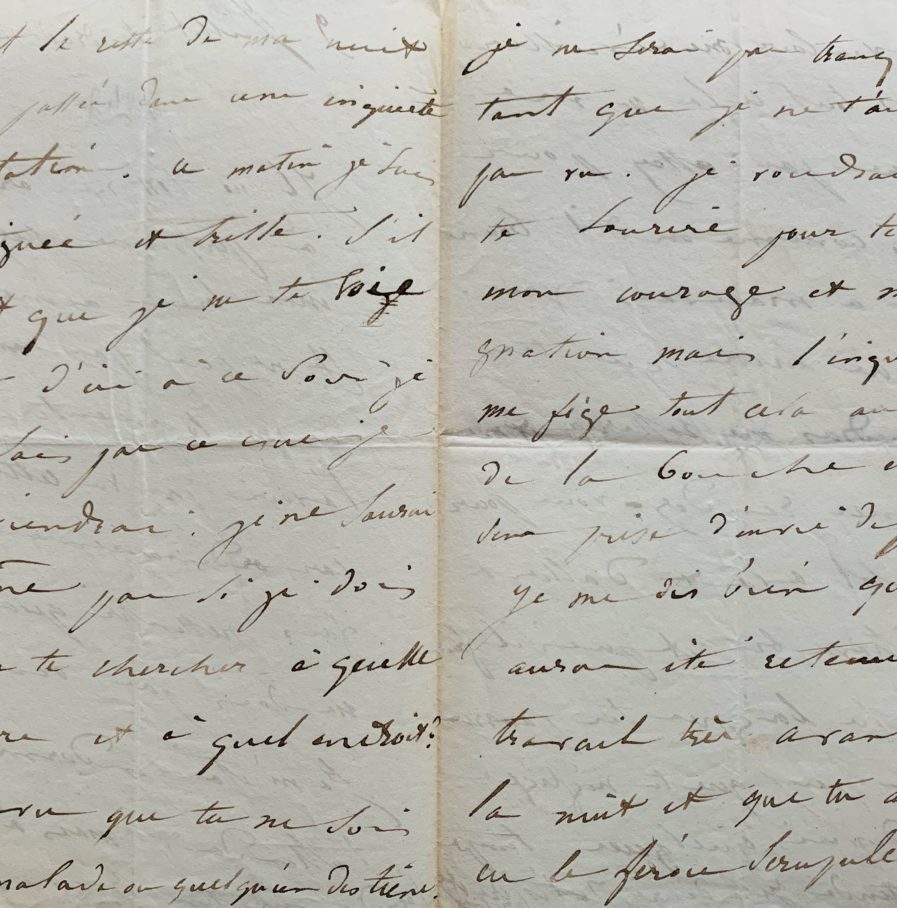 t le reste de ma nuit
passée dans une inquiète
tation. ce matin je suis
guée et triste. S'il
t que je ne te voie
d'ici à ce soir je
sais pas ce que je
iendrai. je ne saurai
me pas si je dois
te chercher à quelle
re et à quel endroit?
rvu que tu ne sois
malade ou quelqu'un des tiens.
je ne serai pas tranq
tant que je ne t'au
pas vu. je voudrai
te sourire pour te
mon courage et m
gnation mais l'inqu
me fige tout cela au
de la bouche e
prise d'envie de
je me dis bien qu
auras été retenu
travail très avan
la nuit et que tu a
eu le féroce scrupule